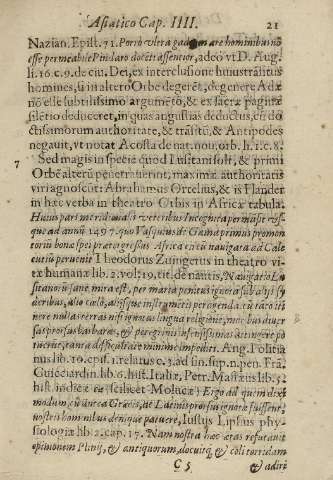 Asiatico Cap. IIII. 21
Nazian. Epist. 71. Porrò vltra gades mare hominibus nō
esse permeabile Pindaro docēti assentior, adeo vt D. Aug.
li. 16. c. 9. de ciu. Dei, ex interclusione huius trāsitus
homines, si in altero Orbe degerēt, de genere Adæ
nō esse subtilissimo argumēto, & ex sacræ paginæ
silētio deduceret, in quas angustias deductus, cū do
ctissimorum authoritate, & trāsitū, & Antipodes
negauit, vt notat Acosta de nat. nou. orb. li. 1. c. 8.
7 Sed magis in specie quòd Lusitani soli, & primi
Orbē alterū penetrauerint, maximæ authoritatis
viri agnoscūt: Abrahamus Ortelius, & is Flander
in hæc verba in theatro Orbis in Africæ tabula.
Huius pars meridionalis veteribus incognita permāsit vs-
que ad annū 1497. quo Vasquius de Gama primus promon
toriū bonæ spei prætergressus Africā circū nauigata ad Cale
cutiū peruenit Theodorus Zuingerus in theatro vi-
tæ humanæ lib. 2. vol. 19. tit. de nautis, Nauigatio Lu
sitanorū sanè mira est, per maria penitus ignota sub alijs sy
deribus, alio cælo, alijsque instrumētis peragenda cū tāto iti
nere nullas terras nisi ignotas lingua religione, moribus diuer
sas prorsus barbaras, & peregrinis infensissimas attingere po
tuerit, tamē a difficultate minime impediti. Ang. Politia
nus lib. 10. epist. 1. relatus c. 3. ad fin. sup. n. pen. Frā.
Guicciardin. lib. 6. hist. Italiæ, Petr. Maffæus lib. 5.
hist. indicæ cū (scilicet Molucæ) Ergo ad quem dixi
modum, cū antea Græcis, ac Latinis prorsus ignotæ fuissent,
nostris hominibus denique patuere, Iustus Lipsius phy-
siologiæ lib. 2. cap. 17. Nam nostra hæc ætas refutauit
opinionem Plinij, & antiquorum, docuitq, & coli torridam
C 5 & adiri